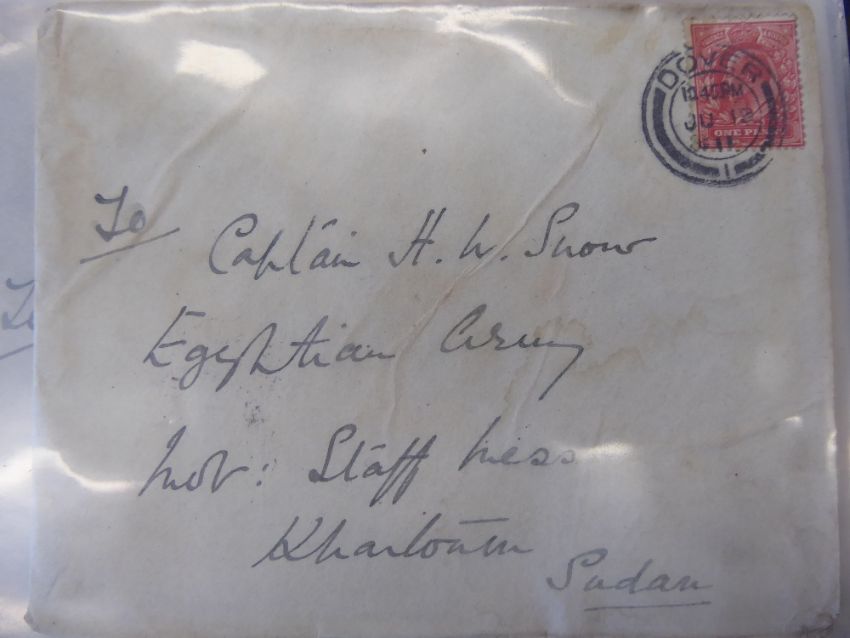 DOVER
10.40PM
JU 12
11
1
ONE PE
To
Captain H. W. Snow
Egyptian Army
Staff Mess
Khartoum
Sudan